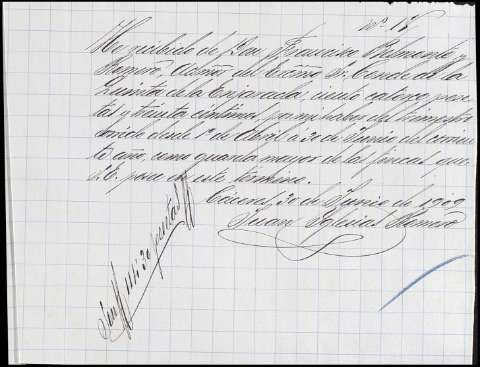 Nº 17
He recibido de Don Francisco Belmonte y
Romero, Admor. del Excmo. Sr. Conde de la
Quinta de la Enjarada, ciento catorce pese-
tas y treinta céntimos, por mi haber del trimestre
corrido desde 1º de Abril á 30 de Junio del corrien-
te año, como guarda mayor de las fincas que
S. E. posee en este término.
Cáceres, 30 de Junio de 1909
Juan Iglesias Romero
Son 114'30 pesetas